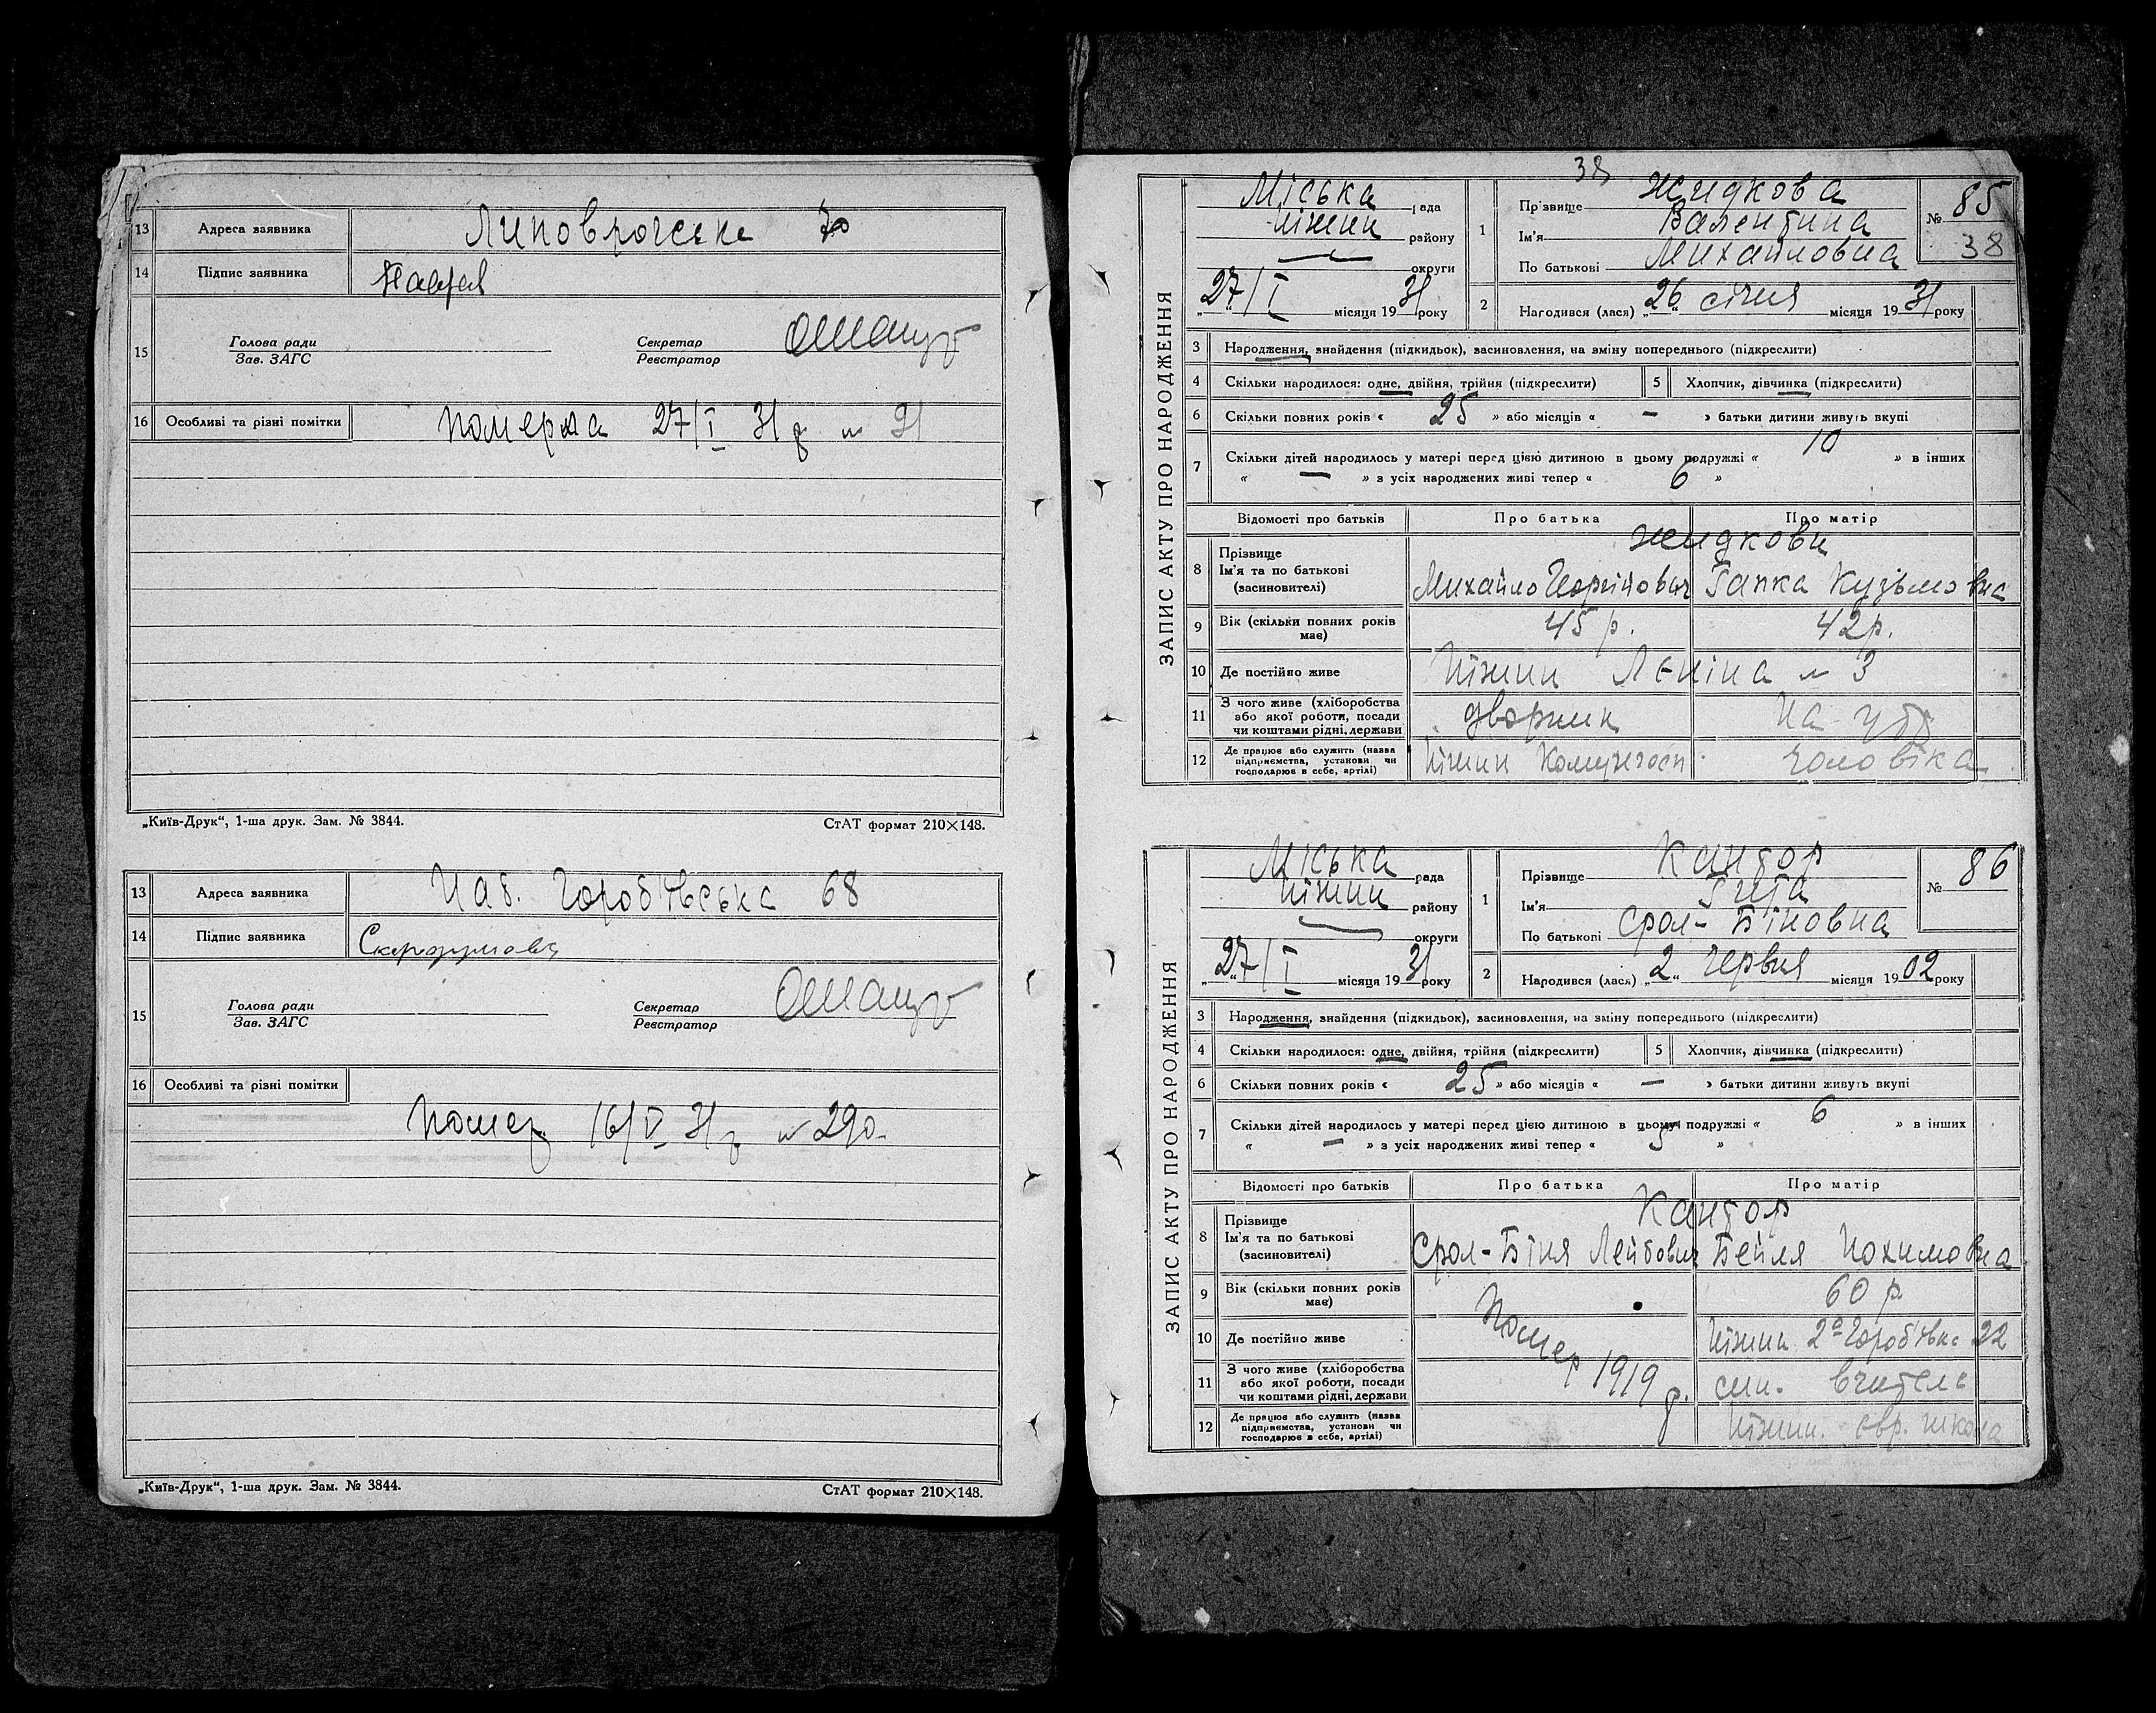 13 Адреса заявника
14 Підпис заявника
15 Голова ради
Зав. ЗАГС
Секретар
Реєстратор
16 Особливі та різні помітки померла 27/I 31 р № 91
„Київ-Друк“, 1-ша друк. Зам. № 3844. СтАТ формат 210×148.
13 Адреса заявника Наб. 68
14 Підпис заявника
15 Голова ради
Зав. ЗАГС
Секретар
Реєстратор
16 Особливі та різні помітки
помер 16/V 31 р № 290
„Київ-Друк“, 1-ша друк. Зам. № 3844. СтАТ формат 210×148.
38
ЗАПИС АКТУ ПРО НАРОДЖЕННЯ
Міська рада
Ніжин району
округи
27/I місяця 1931 року
1 Прізвище Жидкова
Ім'я Валентина
По батькові Михайловна
№ 85
38
2 Народився (лася) „26“ січня місяця 1931 року
3 Народження, знайдення (підкидьок), засиновлення, на зміну попереднього (підкреслити)
4 Скільки народилося: одне, двійня, трійня (підкреслити) 5 Хлопчик, дівчинка (підкреслити)
6 Скільки повних років « 25 » або місяців « — » батьки дитини живуть вкупі
7 Скільки дітей народилось у матері перед цією дитиною в цьому подружжі « 10 » в інших
« — » з усіх народжених живі тепер « 6 »
Відомості про батьків Про батька Про матір
8 Прізвище
Ім'я та по батькові
(засиновителі)
Жидкови
Михайло Георгійович Гапка Кузьмовна
9 Вік (скільки повних років має) 45 р. 42 р.
10 Де постійно живе Ніжин Леніна № 3
11 З чого живе (хліборобства
або якої роботи, посади
чи коштами рідні, держави
дворник На утр
12 Де працює або служить (назва
підприємства, установи чи
господарює в себе, артілі)
Ніжин Комунгосп чоловіка
ЗАПИС АКТУ ПРО НАРОДЖЕННЯ
Міська рада
Ніжин району
округи
27/I місяця 1931 року
1 Прізвище Кантор
Ім'я Гита
По батькові Срол-Біновна
№ 86
2 Народився (лася) „2“ червня місяця 1902 року
3 Народження, знайдення (підкидьок), засиновлення, на зміну попереднього (підкреслити)
4 Скільки народилося: одне, двійня, трійня (підкреслити) 5 Хлопчик, дівчинка (підкреслити)
6 Скільки повних років « 25 » або місяців « — » батьки дитини живуть вкупі
7 Скільки дітей народилось у матері перед цією дитиною в цьому подружжі « 6 » в інших
« — » з усіх народжених живі тепер « 5 »
Відомості про батьків Про батька Про матір
8 Прізвище
Ім'я та по батькові
(засиновителі)
Кантор
Срол-Біня Лейбович Бейля Нохимовна
9 Вік (скільки повних років має) 60 р
10 Де постійно живе Помер 1919 р. Ніжин 22
11 З чого живе (хліборобства
або якої роботи, посади
чи коштами рідні, держави
син. вчитель
12 Де працює або служить (назва
підприємства, установи чи
господарює в себе, артілі)
Ніжин. євр. школа